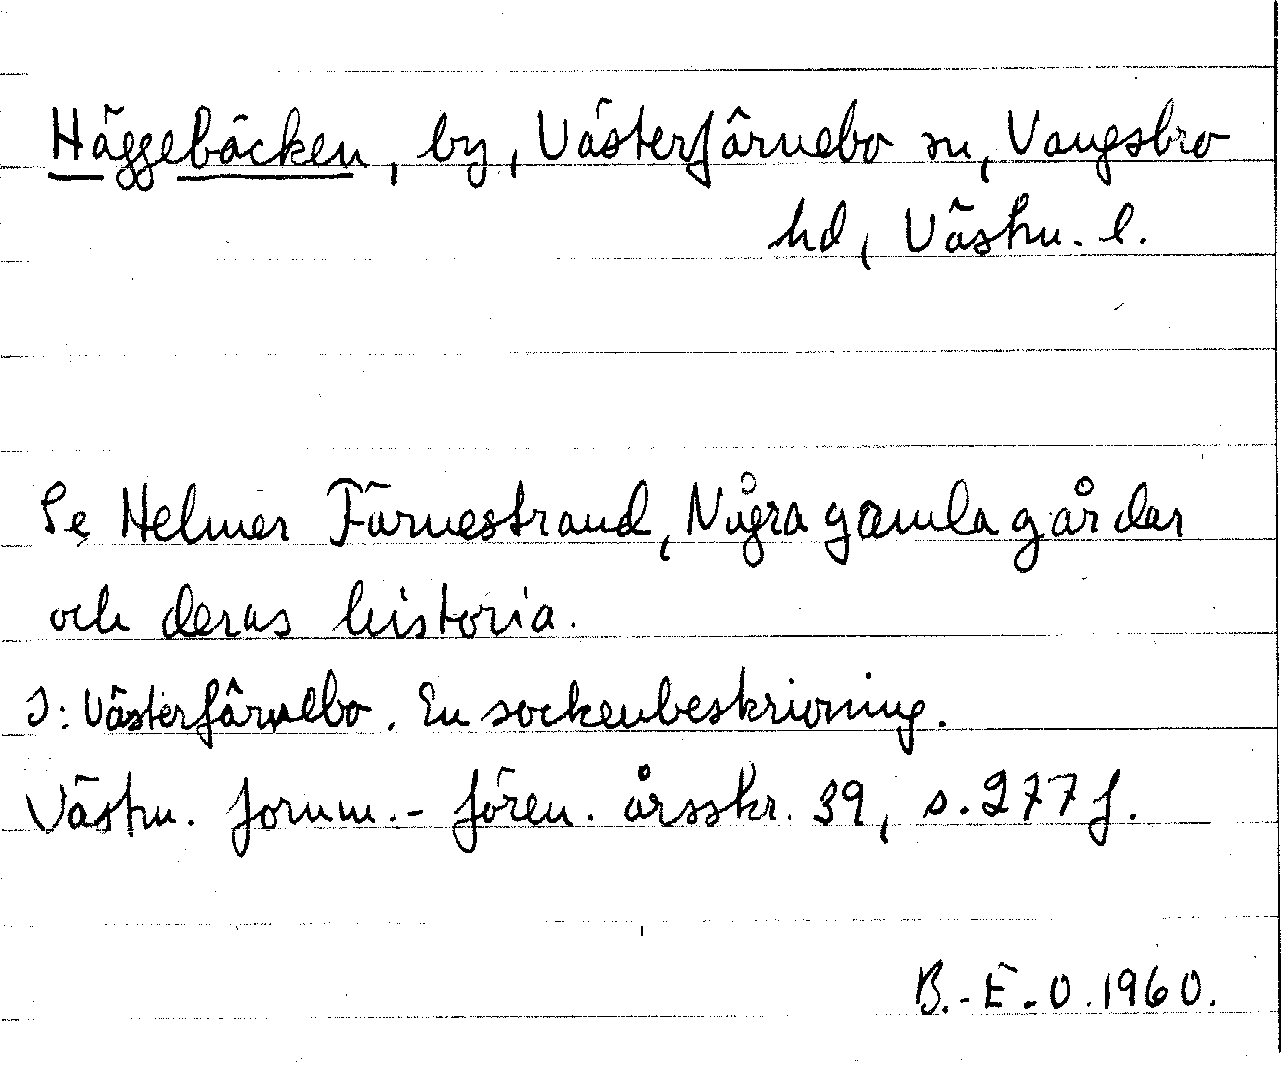 Häggebäcken, by, Västerfärnebo sn, Vangsbro
hd, Västm. l.
Se Helmer Färnestrand, Några gamla gårdar
och deras historia.
I: Västerfärnebo. En sockenbeskrivning.
Västm. fornm.-fören. årsskr. 39, s. 277 f.
B.-E.O. 1960.